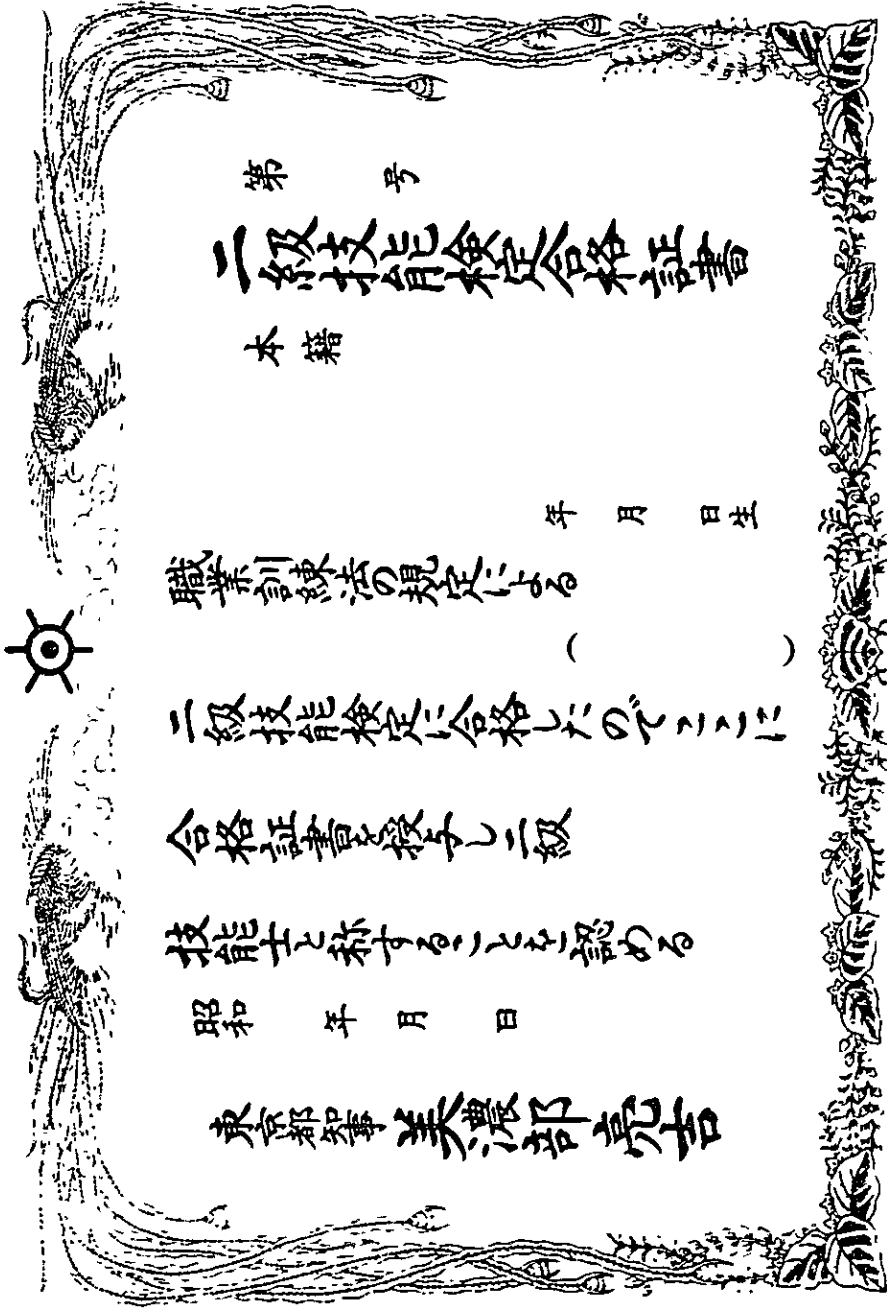 第　　号
二級技能検定合格証書
本籍
年　月　日生
職業訓練法の規定による
（　　　　）
二級技能検定に合格したのでここに
合格証書を授与し二級
技能士と称することを認める
昭和　　年　月　日
東京都知事 美濃部亮吉